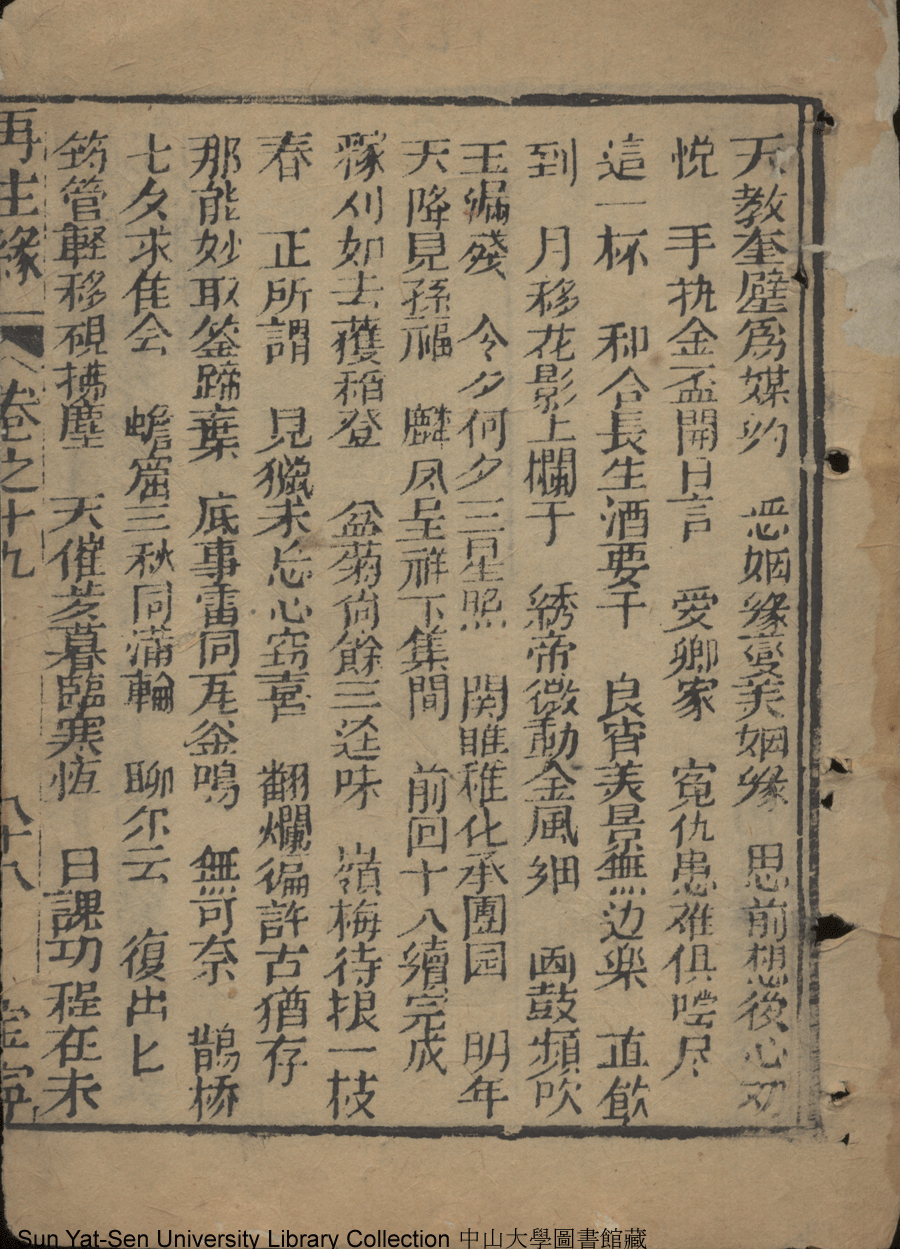 天教奎壁為媒妁　惡姻緣變美姻緣　思前想後心
悅　手执金盃開日言　愛卿家　寃仇患难俱嚐尽
這一杯　和合長生酒要干　良宵美景無边樂　直飲
到　月移花影上欄干　綉帝微動金風细　画鼓頻吹
玉漏殘　今夕何夕三星照　関睢稚化承團园　明年
天降見孫福　麟凤呈祥下集間　前回十八續完成
稼刈如去獲稻登　盆菊尙餘三迳味　嶺梅待报一枝
春　正所謂　見獵未忘心窃喜　翻爛徧許古猶存
那能妙取筌蹄棄　底事雷同瓦釜鳴　無可奈　鵲桥
七夕求隹会　蟾窟三秋同滿輪　聊尔云　復出匕
筠管輕移硯拂塵　天催芰暮臨寒恆　日課功程在未
再生緣　卷之十九　八十八
Sun Yat-Sen University Library Collection 中山大學圖書館藏